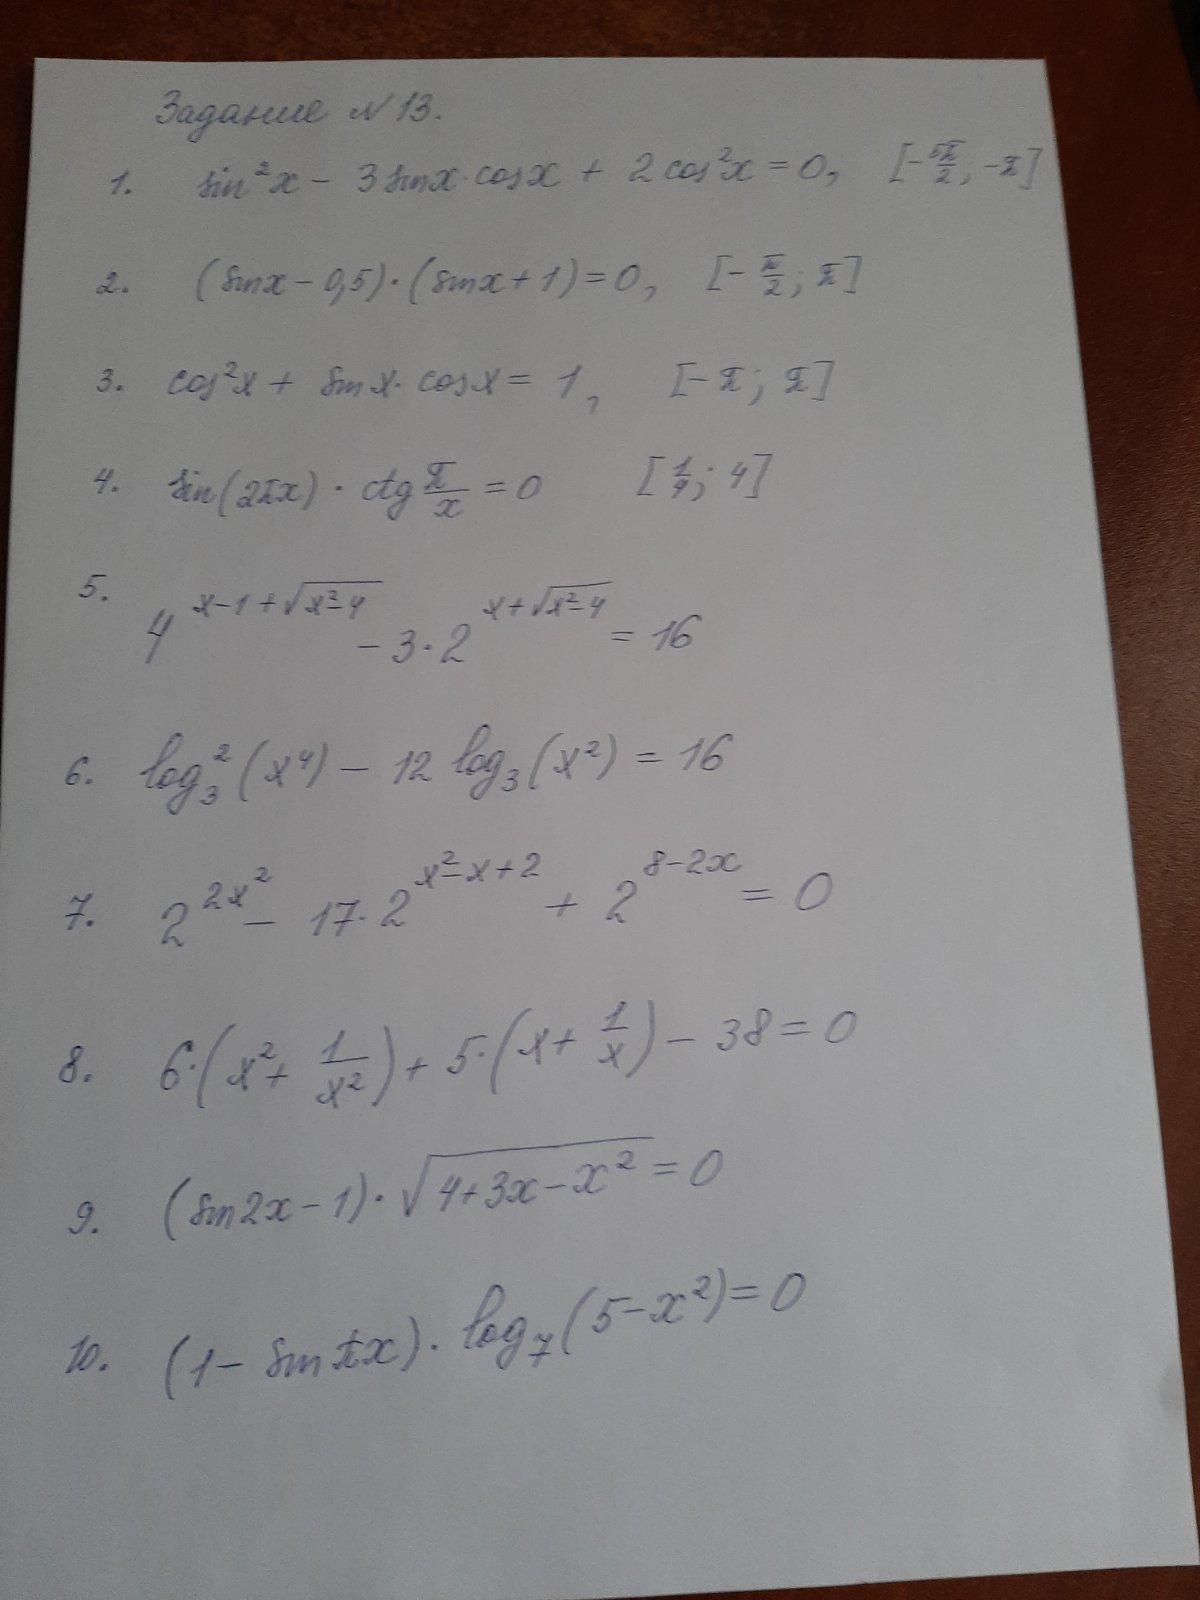 Задание № 13.
1. sin²x - 3 sinx·cosx + 2 cos²x = 0, [-5π/2; -π]
2. (sinx - 0,5)·(sinx + 1) = 0, [-π/2; π]
3. cos²x + sinx·cosx = 1, [-π; π]
4. sin(2πx)·ctg π/x = 0 [1/4; 4]
5. 4^(x-1+√(x²-4)) - 3·2^(x+√(x²-4)) = 16
6. log₃²(x⁴) - 12 log₃(x²) = 16
7. 2^(2x²) - 17·2^(x²-x+2) + 2^(8-2x) = 0
8. 6·(x² + 1/x²) + 5·(x + 1/x) - 38 = 0
9. (sin2x - 1)·√(4+3x-x²) = 0
10. (1 - sin πx)·log₇(5-x²) = 0